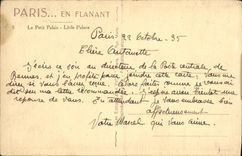 PARIS... EN FLANANT
Le Petit Palais - Little Palace
Paris 22 Octobre. 35
Chère Antoinette
J'écris ce soir au directeur de la Poste centrale de
Rennes, et j'en profite pour joindre cette carte. Vous me
direz si vous l'avez reçue. Alors faites comme je vous ai
dit sur ma lettre recommandée. J'espère avoir bientôt une
réponse de vous. En attendant je vous embrasse bien
affectueusement
Votre Marcel qui vous aime.